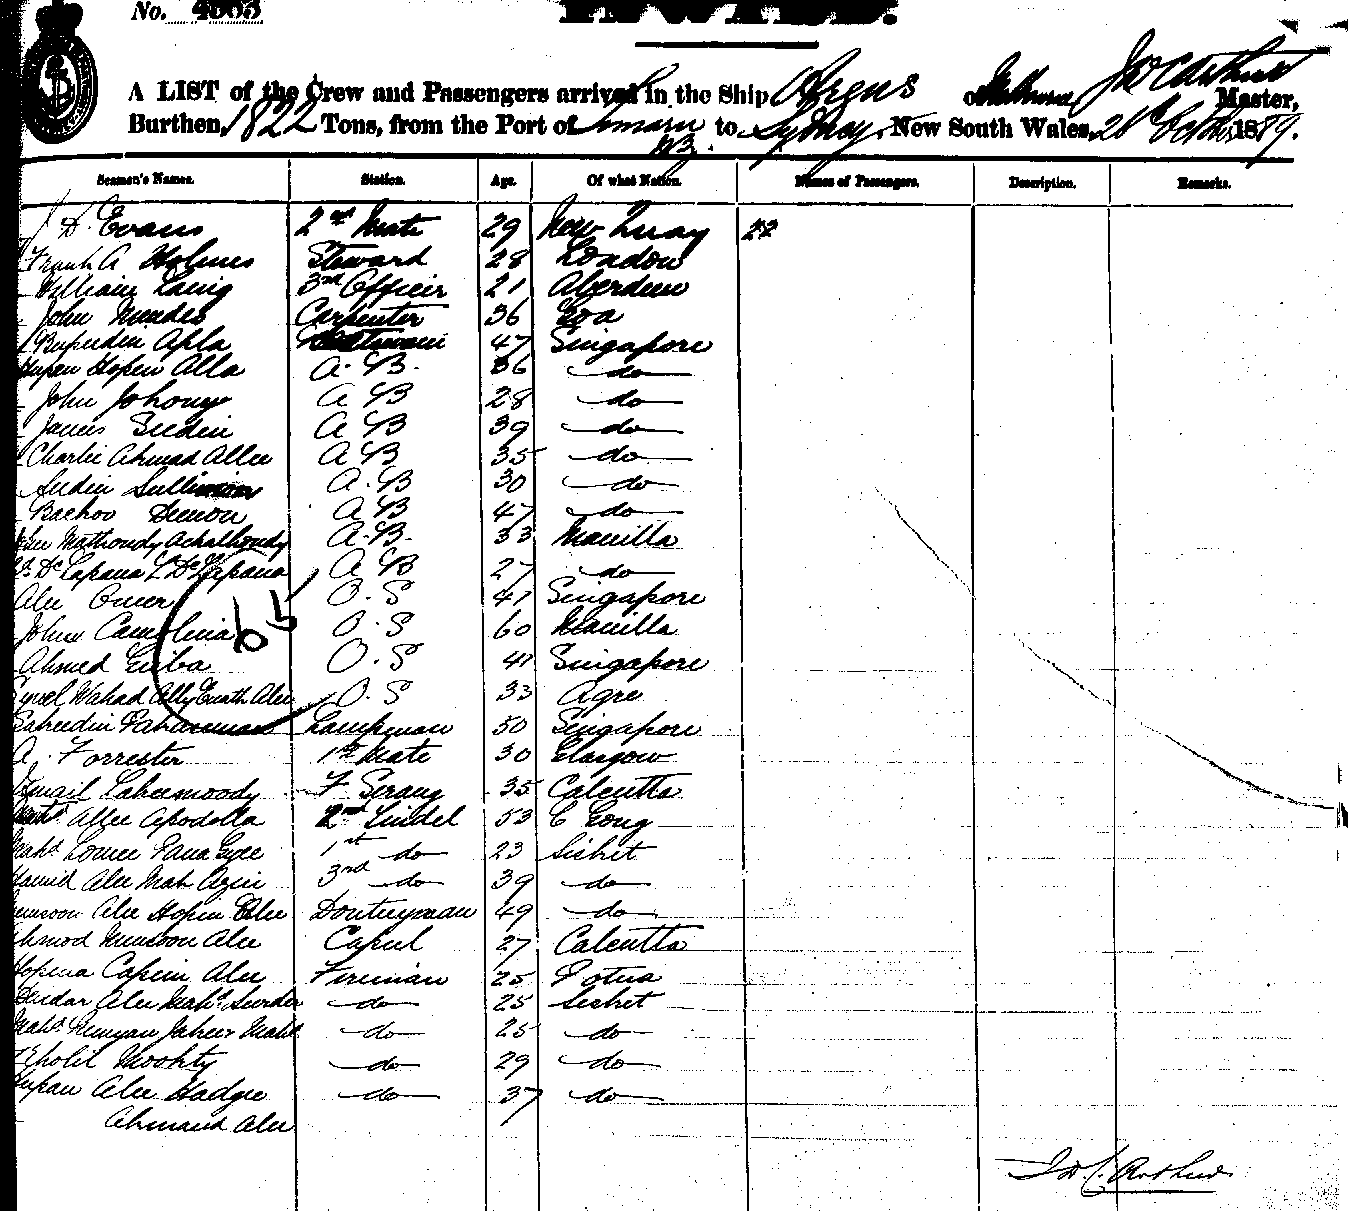 No. 4883
A LIST of the Crew and Passengers arrived in the Ship Argus of Melbourne Jas McArthur Master,
Burthen, 1822 Tons, from the Port of Oamaru NZ. to Sydney, New South Wales, 28th October 1889.
Seamen's Names. Station. Age. Of what Nation. Names of Passengers. Description. Remarks.
D. Evans 2nd Mate 29 New Quay 22
Frank A Holmes Steward 28 London
William Laing 3rd Officer 21 Aberdeen
John Mendes Carpenter 36 Goa
Apla 47 Singapore
Hopen Alla A. B. 36 do
John Johony A B 28 do
James Sledin A B 39 do
Charlie Ahmad Allee A B 35 do
A. B 30 do
Bachoo Demon A B 47 do
Mathoudy Achalhoudy A. B. 33 Manilla
De Lapana L De Lapana A B 27 do
Alee Omer O. S 41 Singapore
John Camolina O. S 60 Manilla
Ahmed Eriba O. S 41 Singapore
Wahad Ally Enath Alee O. S 33 Agre
65
Lampman 50 Singapore
A. Forrester 1st Mate 30 Glasgow
Ismail Lahermoody F Serang 35 Calcutta
Allee Apodolla 2nd Tindel 53 C Gong
1st do 23 Sishet
Hamid Alee Mah Azim 3rd do 39 do
Alee Hopin Alee Donkeyman 49 do
Ahmod Munsoon Alee 27 Calcutta
Hopena Capim Alee Fireman 25 Potna
Alee Mahd Surdar do 25 Sishet
Mahd do 25 do
Moohty do 29 do
Alee Hadgee do 37 do
Ahmaud Alee
J W C Arthur